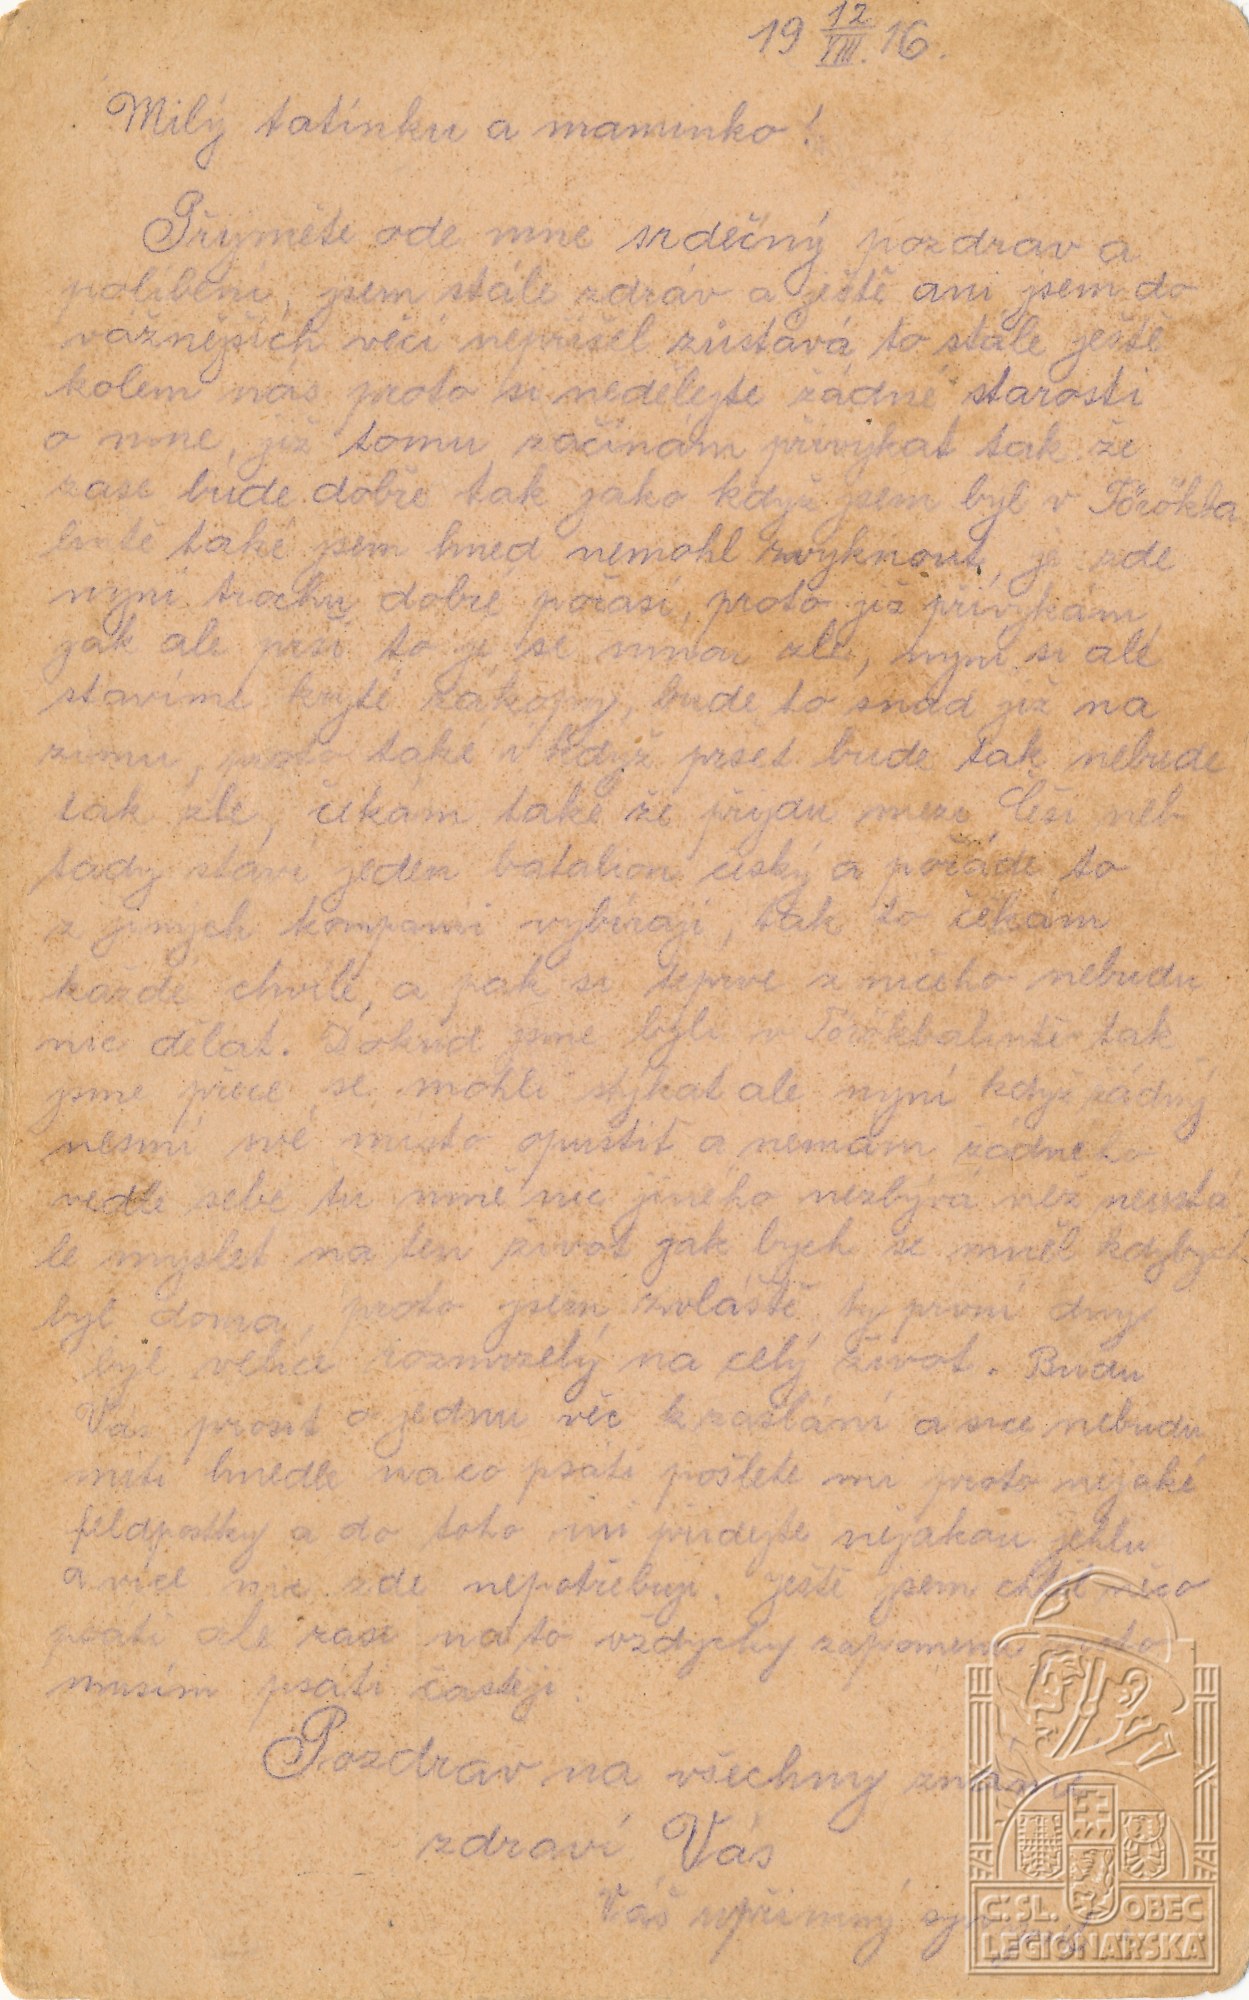 19 12/VIII. 16.
Milý tatínku a maminko!
Přijměte ode mne srdečný pozdrav a
políbení, jsem stále zdráv a ještě ani jsem do
vážnějších věcí nepřišel zůstává to stále ještě
kolem nás proto si nedělejte žádné starosti
o mne, již tomu začínám přivykat tak že
zase bude dobře tak jako když jsem byl v Törökba
lintě také jsem hned nemohl zvyknout, je zde
nyní trochu dobré počasí, proto již přivykám,
jak ale prší to je se mnou zle, nyní si ale
stavíme kryté zákopy, bude to snad již na
zimu, proto také i když pršet bude tak nebude
tak zle, čekám také že přijdu mezi Čechi neb
tady staví jeden batalion český a pořáde to
z jiných kompanií vybírají, tak to čekám
každé chvíle, a pak si teprve z ničeho nebudu
nic dělat. Dokud jsme byli v Törökbalintě tak
jsme přece se mohli stýkat ale nyní když žádný
nesmí své místo opustit a nemám žádného
vedle sebe tu mně nic jiného nezbývá než neustá
le myslet na ten život jak bych se mněl kdybych
byl doma, proto jsem, zvláště ty první dny
byl velice rozmrzelý na celý život. Budu
Vás prosit o jednu věc k zaslání a sice nebudu
míti hnedle na co psáti pošlete mi proto nějaké
feldpostky a do toho mi přidejte nějakou jehlu
a více nic zde nepotřebuji. Ještě jsem chtěl něco
psáti ale zase na to vždycky zapomenu
musím psáti častěji.
Pozdrav na všechny známé
zdraví Vás
Váš upřímný syn
Č. SL. OBEC
LEGIONÁŘSKÁ